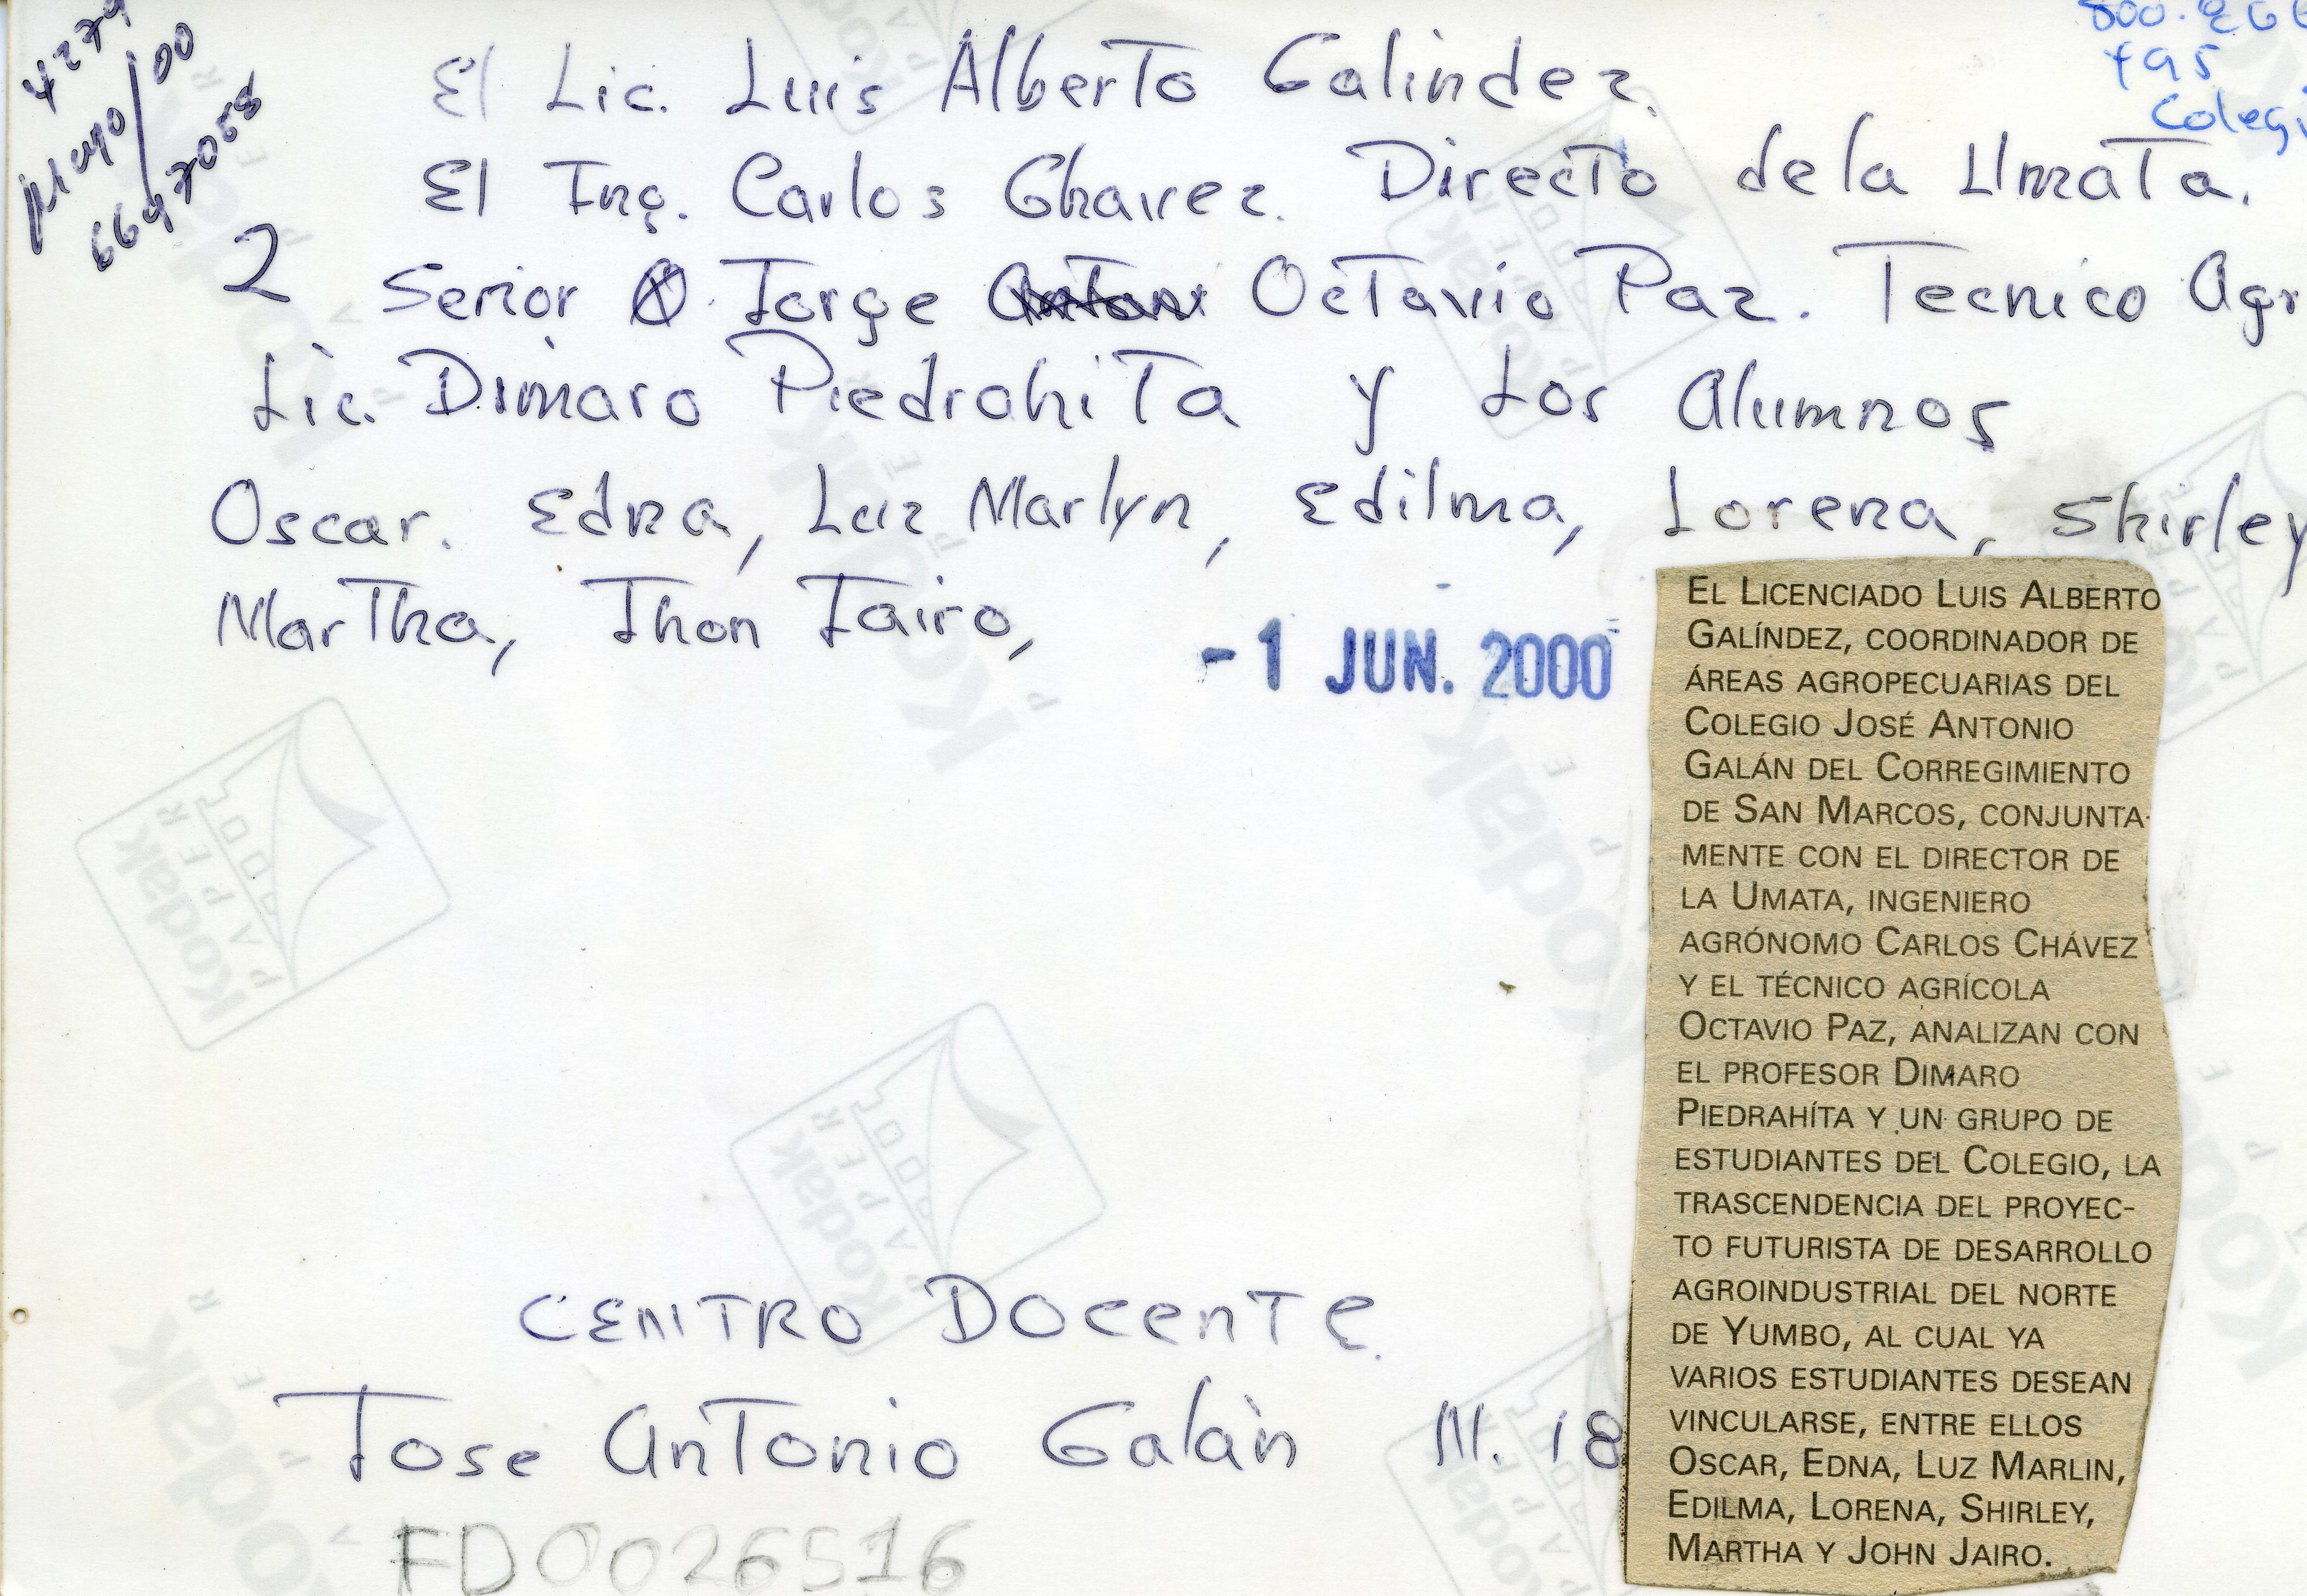 4279
Mayo/00
6647055
800.266
795
Colegi
El Lic. Luis Alberto Galindez.
El Ing. Carlos Chavez. Directo de la Umata.
2 Señor Jorge Octavio Paz. Tecnico Agr
Lic. Dimaro Piedrahita y Los Alumnos
Oscar. Edna, Luz Marlyn, Edilma, Lorena, Shirley
Martha, Jhon Jairo,
-1 JUN. 2000
EL LICENCIADO LUIS ALBERTO
GALÍNDEZ, COORDINADOR DE
ÁREAS AGROPECUARIAS DEL
COLEGIO JOSÉ ANTONIO
GALÁN DEL CORREGIMIENTO
DE SAN MARCOS, CONJUNTA-
MENTE CON EL DIRECTOR DE
LA UMATA, INGENIERO
AGRÓNOMO CARLOS CHÁVEZ
Y EL TÉCNICO AGRÍCOLA
OCTAVIO PAZ, ANALIZAN CON
EL PROFESOR DIMARO
PIEDRAHÍTA Y UN GRUPO DE
ESTUDIANTES DEL COLEGIO, LA
TRASCENDENCIA DEL PROYEC-
TO FUTURISTA DE DESARROLLO
AGROINDUSTRIAL DEL NORTE
DE YUMBO, AL CUAL YA
VARIOS ESTUDIANTES DESEAN
VINCULARSE, ENTRE ELLOS
OSCAR, EDNA, LUZ MARLIN,
EDILMA, LORENA, SHIRLEY,
MARTHA Y JOHN JAIRO.
CENTRO DOCENTE.
Jose Antonio Galàn M. 18
FD0026516
Kodak
PAPER